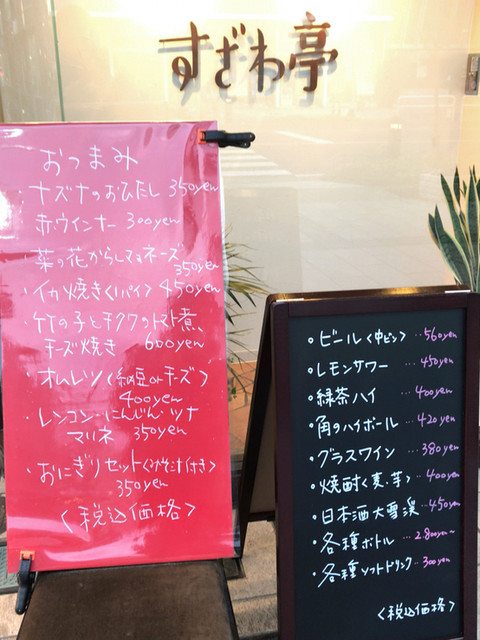 すざわ亭
おつまみ
・ナズナのおひたし 350yen
・赤ウインナー 300yen
・菜の花からしマヨネーズ
350yen
・イカ焼き〈1パイ〉 450yen
・竹の子とチクワのトマト煮
チーズ焼き 600yen
・オムレツ〈納豆orチーズ〉
400yen
・レンコン・にんじん・ツナ
マリネ 350yen
・おにぎりセット〈みそ汁付き〉
350yen
〈税込価格〉
・ビール〈中ビン〉…560yen
・レモンサワー …450yen
・緑茶ハイ …400yen
・角のハイボール …420yen
・グラスワイン …380yen
・焼酎〈麦、芋〉…400yen
・日本酒大雪渓 …450yen
・各種ボトル …2.800yen~
・各種ソフトドリンク …300yen
〈税込価格〉